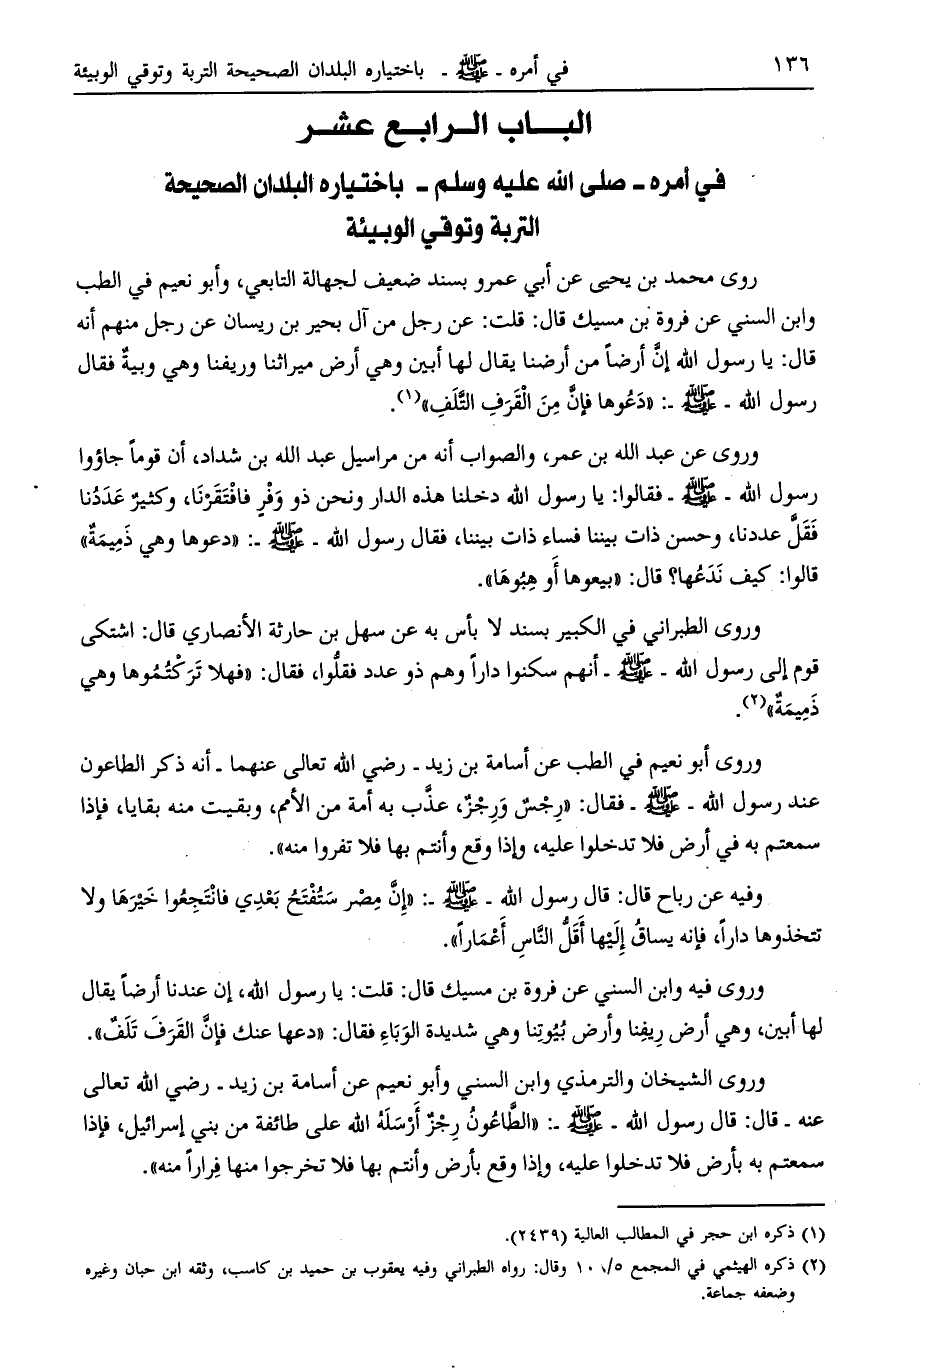 ١٣٦ في أمره ـ ﷺ ـ باختياره البلدان الصحيحة التربة وتوقي الوبيئة
الباب الرابع عشر
في أمره ـ صلى الله عليه وسلم ـ باختياره البلدان الصحيحة
التربة وتوقي الوبيئة
روى محمد بن يحيى عن أبي عمرو بسند ضعيف لجهالة التابعي، وأبو نعيم في الطب
وابن السني عن فروة بن مسيك قال: قلت: عن رجل من آل بحير بن ريسان عن رجل منهم أنه
قال: يا رسول الله إنَّ أرضاً من أرضنا يقال لها أبين وهي أرض ميراثنا وريفنا وهي وبيةٌ فقال
رسول الله ـ ﷺ ـ: «دَعُوها فإنَّ مِنَ الْقَرَفِ التَّلَفِ»(١).
وروى عن عبد الله بن عمر، والصواب أنه من مراسيل عبد الله بن شداد، أن قوماً جاؤوا
رسول الله ـ ﷺ ـ فقالوا: يا رسول الله دخلنا هذه الدار ونحن ذو وَفْرٍ فافْتَقَرْنَا، وكثيرٌ عَدَدُنا
فَقَلَّ عددنا، وحسن ذات بيننا فساء ذات بيننا، فقال رسول الله ـ ﷺ ـ: «دعوها وهي ذَمِيمَةٌ»
قالوا: كيف نَدَعُها؟ قال: «بيعوها أَو هِبُوهَا».
وروى الطبراني في الكبير بسند لا بأس به عن سهل بن حارثة الأنصاري قال: اشتكى
قوم إلى رسول الله ـ ﷺ ـ أنهم سكنوا داراً وهم ذو عدد فقلُّوا، فقال: «فهلا تَرَكْتُمُوها وهي
ذَمِيمَةٌ»(٢).
وروى أبو نعيم في الطب عن أسامة بن زيد ـ رضي الله تعالى عنهما ـ أنه ذكر الطاعون
عند رسول الله ـ ﷺ ـ فقال: «رِجْسٌ وَرِجْزٌ، عذَّب به أمة من الأمم، وبقيت منه بقايا، فإذا
سمعتم به في أرض فلا تدخلوا عليه، وإذا وقع وأنتم بها فلا تفروا منه».
وفيه عن رباح قال: قال رسول الله ـ ﷺ ـ: «إنَّ مِصْر سَتُفْتَحُ بَعْدِي فانْتَجِعُوا خَيْرَهَا ولا
تتخذوها داراً، فإنه يساقُ إلَيْها أَقَلُّ النَّاسِ أَعْمَاراً».
وروى فيه وابن السني عن فروة بن مسيك قال: قلت: يا رسول الله، إن عندنا أرضاً يقال
لها أبين، وهي أرض رِيفِنا وأرض بُيُوتِنا وهي شديدة الوَبَاءِ فقال: «دعها عنك فإنَّ القَرَفَ تَلَفٌ».
وروى الشيخان والترمذي وابن السني وأبو نعيم عن أسامة بن زيد ـ رضي الله تعالى
عنه ـ قال: قال رسول الله ـ ﷺ ـ: «الطَّاعُونُ رِجْزٌ أَرْسَلَهُ الله على طائفة من بني إسرائيل، فإذا
سمعتم به بأرض فلا تدخلوا عليه، وإذا وقع بأرض وأنتم بها فلا تخرجوا منها فِراراً منه».
(١) ذكره ابن حجر في المطالب العالية (٢٤٣٩).
(٢) ذكره الهيثمي في المجمع ١٠٨/٥ وقال: رواه الطبراني وفيه يعقوب بن حميد بن كاسب، وثقه ابن حبان وغيره
وضعفه جماعة.